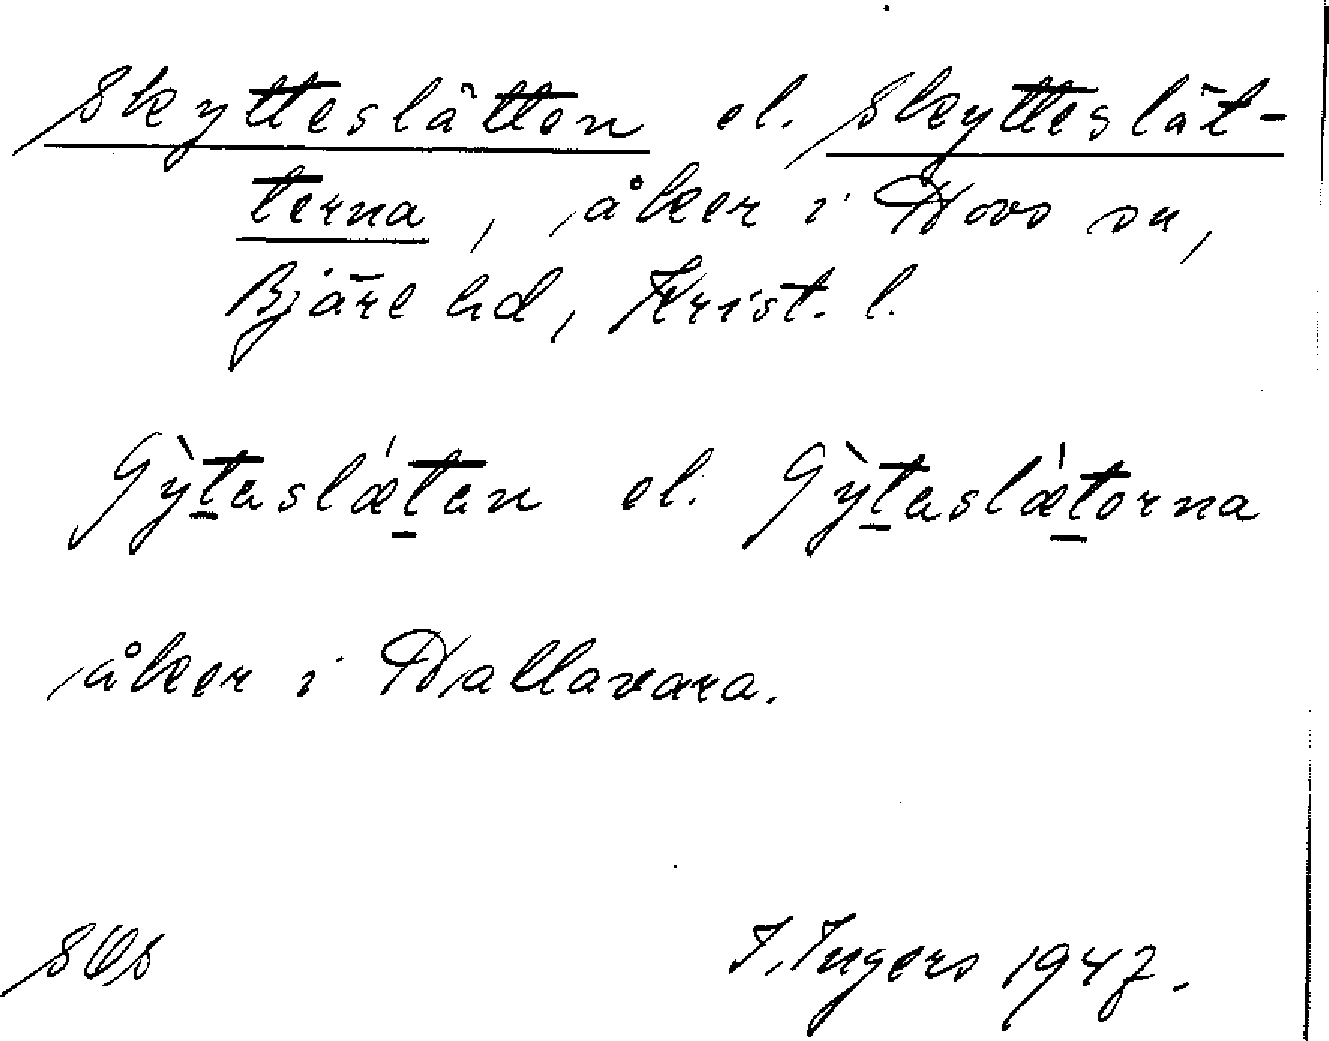 Skytteslätten el. Skytteslät-
terna, åker i Hovs sn,
Bjäre hd, Krist. l.
Gỳt̲aslǽt̲an el. Gỳt̲aslǽt̲orna
åker i Hallavara.
I. Ingers 1947.